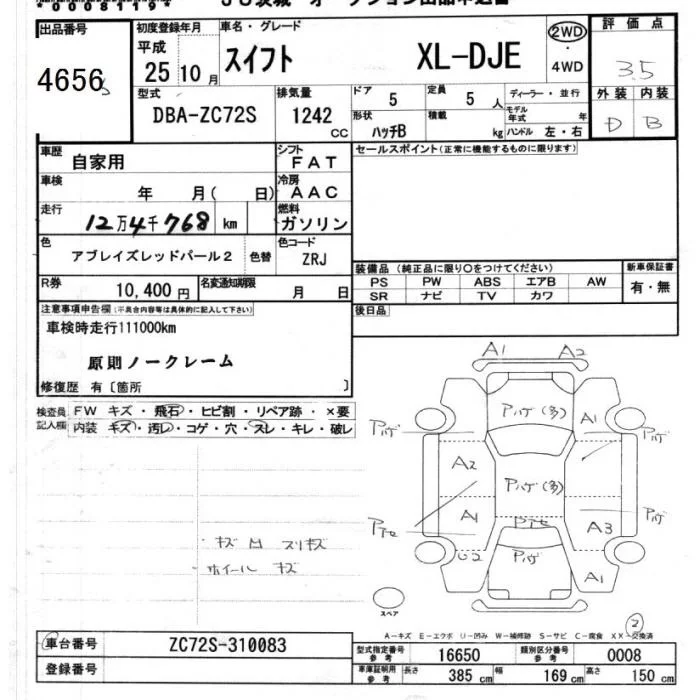 *0008119*
JU茨城 オークション出品申込書
出品番号 初度登録年月 車名・グレード 2WD 評価点
4656 平成 25年10月 スイフト XL-DJE ・ 4WD 3.5
型式 DBA-ZC72S 排気量 1242 CC ドア 5 定員 5人 ディーラー・並行 外装 内装
形状 ハッチB 積載 kg モデル年式 年 ハンドル 左・右 D B
車歴 自家用 シフト FAT セールスポイント(正常に機能するものに限ります)
車検 年 月( 日) 冷房 AAC
走行 12万4千768 km 燃料 ガソリン
色 アブレイズレッドパール2 色替 色コード ZRJ
装備品(純正品に限り○をつけてください) 新車保証書
R券 10,400円 名変通知期限 月 日 PS PW ABS エアB AW 有・無
SR ナビ TV カワ
注意事項申告欄(不具合内容等は具体的に記入して下さい) 後日品
車検時走行111000km
原則ノークレーム
修復歴 有〔箇所 〕
検査員記入欄 FW キズ・飛石・ヒビ割・リペア跡・×要
内装 キズ・汚レ・コゲ・穴・スレ・キレ・破レ
A1 A2
Pハゲ Pハゲ(多) A1 Pハゲ
A2 Pハゲ(多)
A1 A3 Pハゲ
U2 Pハゲ A1
キズ 凹 スリキズ
ホイール キズ
スペア
2
A-キズ E-エクボ U-凹み W-補修跡 S-サビ C-腐食 XX-交換済
車台番号 ZC72S-310083 型式指定番号 参考 16650 類別区分番号 参考 0008
登録番号 車庫証明用 参考 長さ 385 cm 幅 169 cm 高さ 150 cm